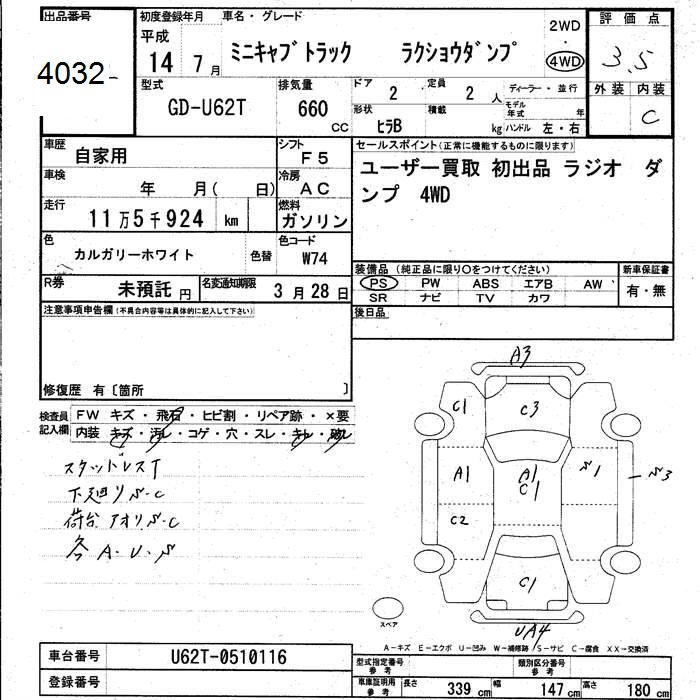 出品番号
4032-
初度登録年月
平成
14 7月
車名・グレード
ミニキャブトラック ラクショウダンプ
2WD
・
4WD
評価点
3.5
外装 内装
C
型式
GD-U62T
排気量
660
CC
ドア
2
定員
2人
ディーラー・並行
形状
ヒラB
積載
kg
モデル年式 年
ハンドル 左・右
車歴
自家用
シフト
F5
車検
年 月( 日)
冷房
AC
走行
11万5千924 km
燃料
ガソリン
色
カルガリーホワイト
色替
色コード
W74
R券
未預託 円
名変通知期限
3月28日
セールスポイント(正常に機能するものに限ります)
ユーザー買取 初出品 ラジオ ダ
ンプ 4WD
装備品(純正品に限り○をつけてください)
PS PW ABS エアB AW
SR ナビ TV カワ
新車保証書
有・無
後日品
注意事項申告欄(不具合内容等は具体的に記入して下さい)
修復歴 有〔箇所 〕
検査員
記入欄
FW キズ・飛石・ヒビ割・リペア跡・×要
内装 キズ・汚レ・コゲ・穴・スレ・キレ・破レ
スタットレスT
下廻りS-C
荷台アオリS-C
各A.U.S
A3
C1
C3
A1
A1
C1
S1
S3
C2
C1
UA4
スペア
A-キズ E-エクボ U-凹み W-補修跡 S-サビ C-腐食 XX-交換済
車台番号
U62T-0510116
登録番号
型式指定番号
参考
類別区分番号
参考
車庫証明用
参考
長さ 339cm 幅 147cm 高さ 180cm